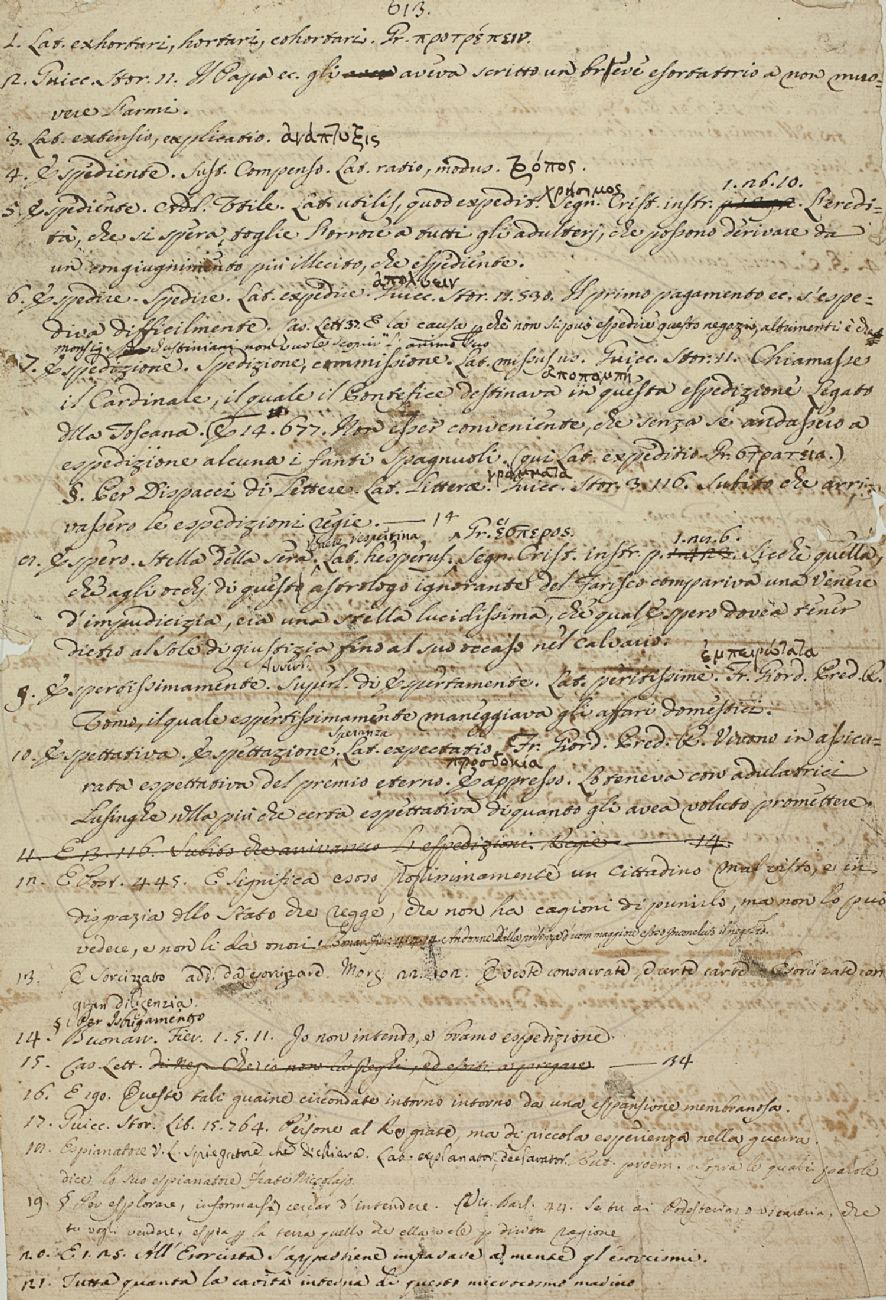 613.
1. Lat. exhortari, hortari, cohortari. Gr. προτρέπειν.
2. Guicc. Stor. 11. Il Papa ec. gli aveva scritto un breve esortatorio a non muo-
vere l'armi.
3. Lat. extensio, explicatio. ἀνάπτυξις
4. Espediente. Sust. Compenso. Lat. ratio, modus. τρόπος.
χρήσιμος 1. nb. 10.
5. Espediente. Add. Utile. Lat. utilis, quod expedit. Segn. Crist. instr. L'eredi-
tà, che si spera, toglie l'orrore a tutti gli adulterj, che possono derivare da
un congiugnimento più illecito, che espediente.
ἀπολύειν
6. Espedire. Spedire. Lat. expedire. Guicc. Stor. 11. 530. Il primo pagamento ec. s'espe-
diva difficilmente. Cas. Lett. 37. E la causa p. che non si può espedir questo negozio, altrimenti è che
monsig. Justiniani non vuole seguir l'animo suo
7. Espedizione. Spedizione, commissione. Lat. missus us. Guicc. Stor. 11. Chiamasse
ἀποπομπή
il Cardinale, il quale il Pontefice destinava in questa espedizione Legato
dlla Toscana. (E 14. 677. Non esser conveniente, che senza se andassero a
espedizione alcuna i fanti Spagnuoli. (qui Lat. expeditio Gr. στρατεία.)
γράμματα
§. Per Dispacci di Lettere. Lat. Litterae. Guicc. Stor. 3. 116. Subito che arri-
vassero le espedizioni regie. — 14
stella vespertina Gr. ἕσπερος. 1. nu. 6.
8. Espero. Stella della sera. Lat. hesperus. Segn. Crist. instr. p. Sicché quella,
che agli occhj di questo astrologo ignorante del Farisco compariva una Venere
d'impudicizia, era una stella lucidissima, che qual Espero dovea tener
dietro al Sole di giustizia fino al suo occaso nel Calvario.
Avverb. ἐμπειρότατα
9. Espertissimamente. Superl. di Espertamente. Lat. peritissime. Fr. Giord. Pred. R.
Tomo, il quale espertissimamente maneggiava gli affari domestici.
Speranza
10. Espettativa. Espettazione. Lat. expectatio. Fr. Giord. Pred. R. Vivono in assicu-
προσδοκία
rata espettativa del premio eterno. E appresso. Lo teneva con adulatrici
Lusinghe nlla più che certa espettativa di quanto gli avea voluto promettere.
11. E 13. 116. Subito che arrivarono le espedizioni Regie — 14.
12. E Post. 445. E significa esoso propriamente un Cittadino malvisto, e in
disgrazia dllo Stato che regge, che non ha cagioni di punirlo, ma non lo può
vedere, e non li dà onori.
13. Esorcizzato add. da esorcizzare. Morg. 22. 102. Queste consacrate, e certe carte esorcizzate con
gran diligenzia.
§. Per Isbrigamento
14. Buonarr. Fier. 1. 5. 11. Io non intendo, e bramo espedizione.
15. Cas. Lett. — 34
16. E 190. Queste tali guaine circondate intorno intorno da una espansione membranosa.
17. Guicc. Stor. Lib. 15. 764. Persone al Re grate, ma di piccola esperienza nella guerra.
18. Espianatore V. L. Spiegatore che dichiara. Lat. explanator, declarator. But. proem. Sopra le quali parole
dice lo suo espianatore Frate Niccolajo.
19. § Per esplorare, informarsi, cercar d'intendere. Se tu ai Podesteria o vicareria, che
tu vogli vendere, espia p. la terra quello che ella vale p. diritta ragione
20. E 1. 25. All'Esorcista s'appartiene imparare a mente gl'esorcismi.
21. Tutta quanta la cavità interna di questo microcosmo marino